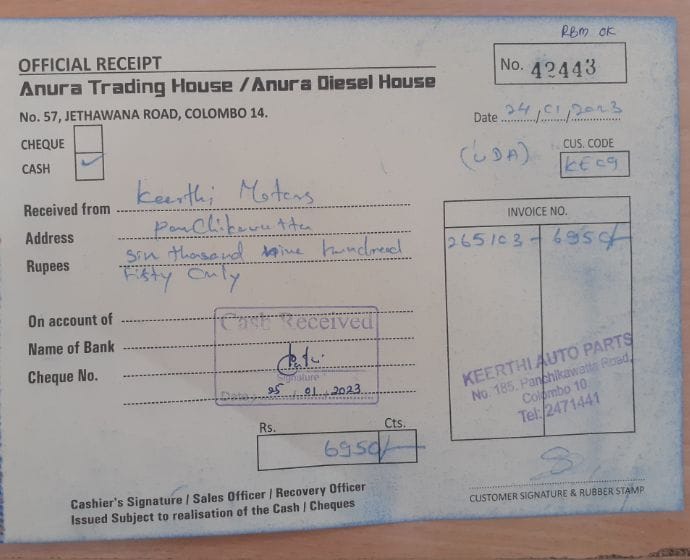 RBM OK
OFFICIAL RECEIPT
No. 42443
Anura Trading House / Anura Diesel House
No. 57, JETHAWANA ROAD, COLOMBO 14.
Date 24/01/2023
CHEQUE
CASH ✓
(UDA)
CUS. CODE
KEC9
Received from Keerthi Motors
Address Panchikawatta
Rupees Six thasand nine hundread
Fifty Only
INVOICE NO.
265103 - 6950/-
On account of
Name of Bank
Cheque No.
Cash Received
Signature
Date 25 01 2023
KEERTHI AUTO PARTS
No. 185, Panchikawatta Road,
Colombo 10.
Tel: 2471441
Rs. Cts.
6950/-
Cashier's Signature / Sales Officer / Recovery Officer
Issued Subject to realisation of the Cash / Cheques
CUSTOMER SIGNATURE & RUBBER STAMP